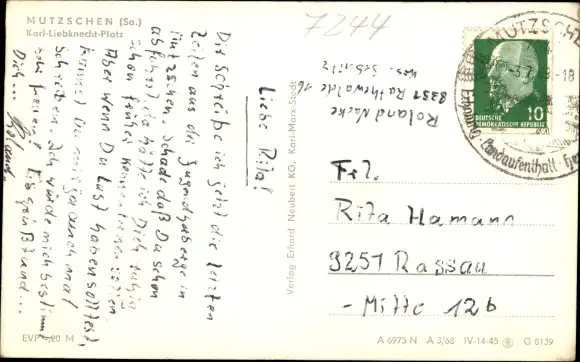 MUTZSCHEN (Sa.)
Karl-Liebknecht-Platz
7244
Liebe Rita!
Dir schreibe ich jetzt die letzten
Zeilen aus der Jugendherberge in
Mutzschen. Schade daß Du schon
abfuhrst, ich hätte Dich ruhig
schon früher kennenlernen sollen.
Aber wenn Du Lust haben solltest,
kannst Du mir ja auch mal
schreiben. Ich würde mich bestimmt
freuen! Es grüßt und ...
Dich ... Roland
Roland Nacke
8351 Rathewalde 16
Krs. Sebnitz
Verlag Erhard Neubert KG, Karl-Marx-Stadt
MUTZSCHE
-18
Erholung
Landaufenthalt
DEUTSCHE
DEMOKRATISCHE REPUBLIK
10
Frl.
Rita Hamann
9251 Rassau
- Mitte 12b
EVP 0,20 M
A 6975 N A 3/68 IV-14-45 G 8139